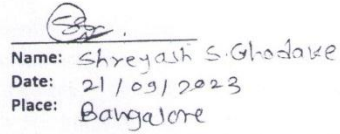 Name: Shreyash S. Ghodake
Date: 21/09/2023
Place: Bangalore